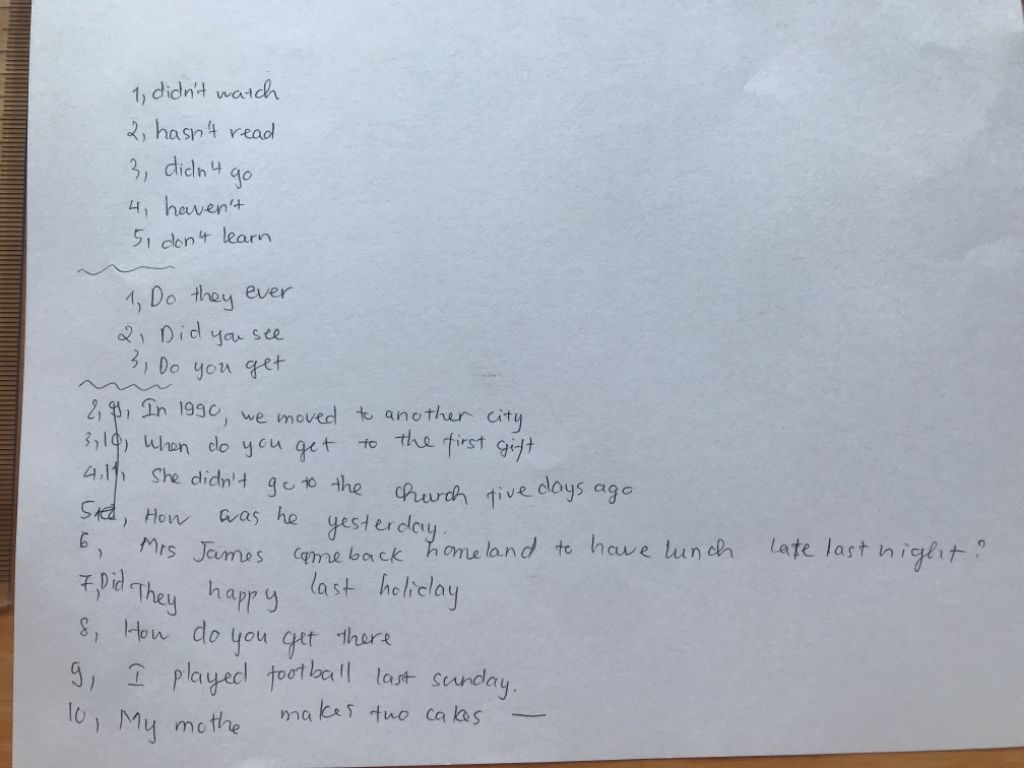 1, didn't watch
2, hasn't read
3, didn't go
4, haven't
5, don't learn
1, Do they ever
2, Did you see
3, Do you get
2, 9, In 1990, we moved to another city
3, 10, When do you get to the first gift
4, 11, She didn't go to the church five days ago
5, How was he yesterday.
6, Mrs James came back homeland to have lunch late last night?
7, Did They happy last holiday
8, How do you get there
9, I played football last sunday.
10, My mothe makes two cakes —